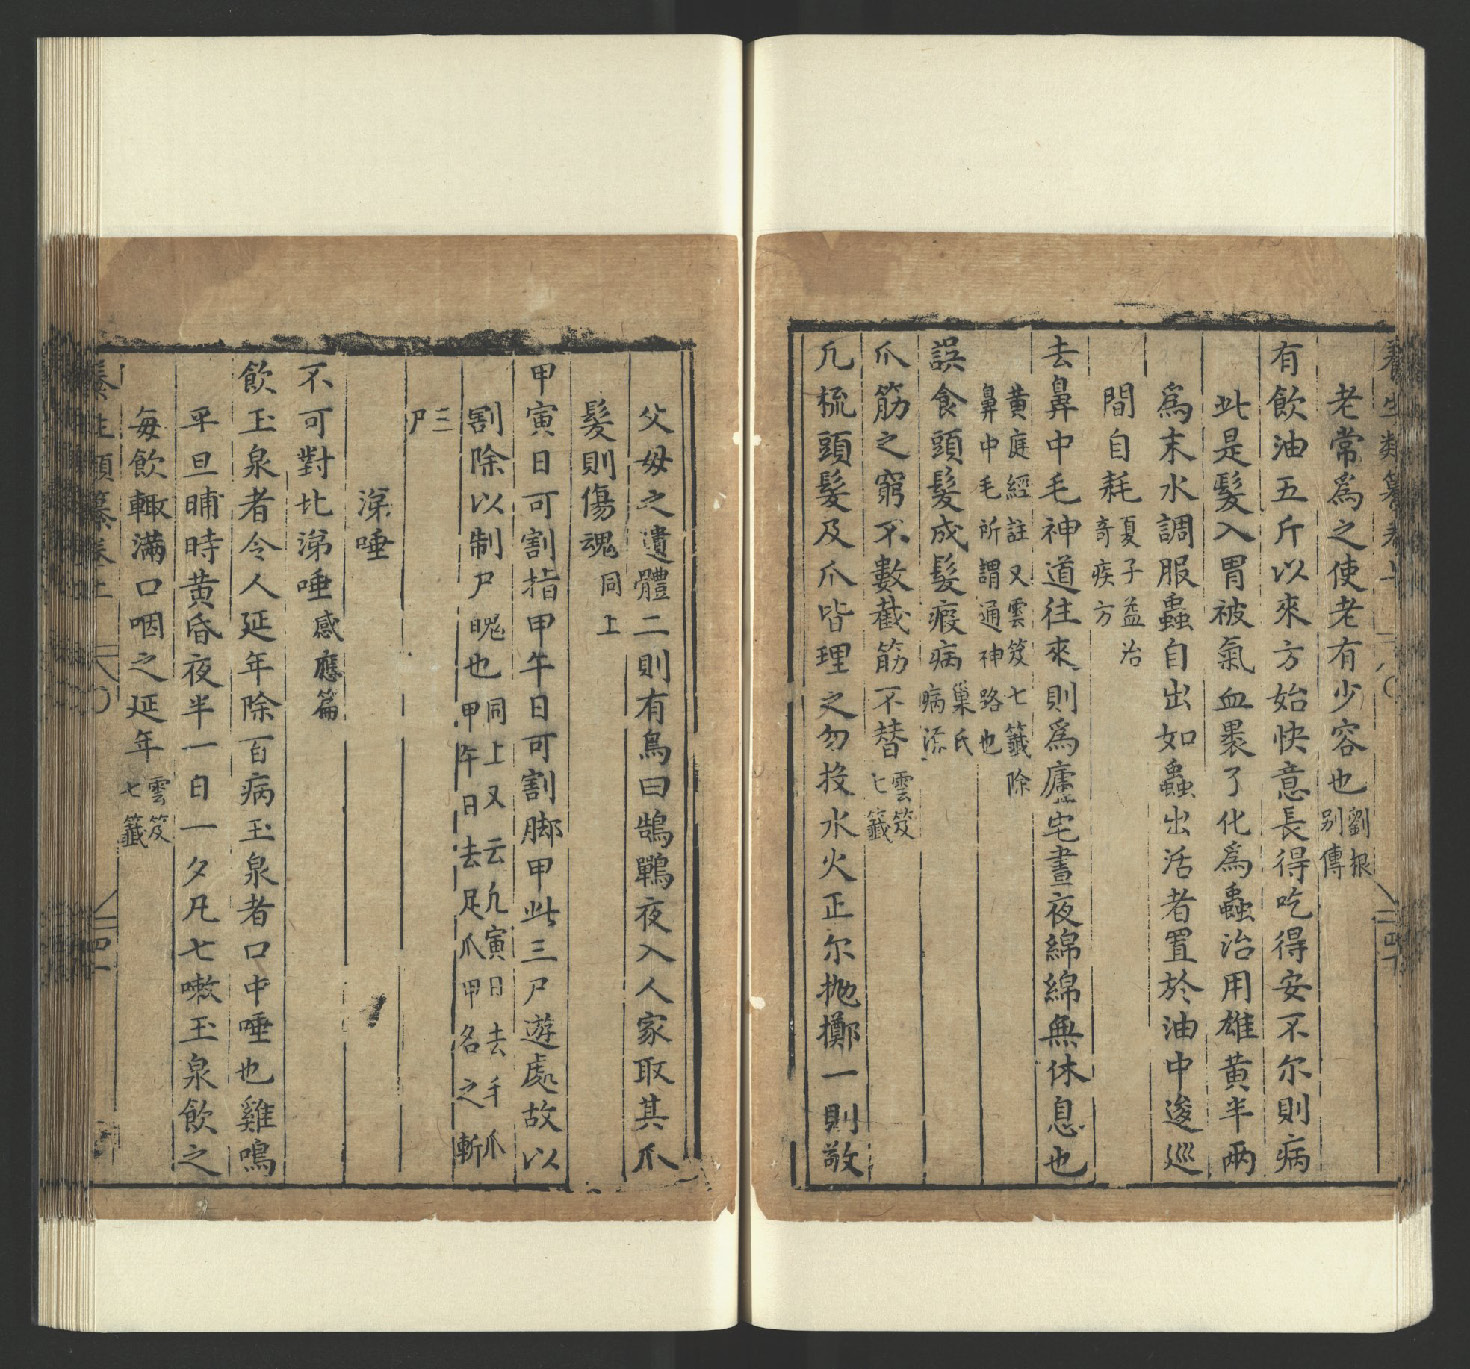 老常爲之使老有少容也劉根別傳
有飲油五斤以來方始快意長得吃得安不尔則病
此是髮入胃被氣血裹了化爲蟲治用雄黄半兩
爲末水調服蟲自出如蟲出活者置於油中逡巡
間自耗夏子益治奇疾方
去鼻中毛神道往來則爲廬宅晝夜綿綿無休息也
黄庭經註又雲笈七籤除鼻中毛所謂通神路也
誤食頭髮成髮瘕病巢氏病源
爪筋之窮不數截筋不替雲笈七籤
凡梳頭髮及爪皆理之勿投水火正尔抛擲一則敬
父母之遺體二則有鳥曰鵂鶹夜入人家取其爪
髮則傷魂同上
甲寅日可割指甲午日可割脚甲此三尸遊處故以
割除以制尸魄也同上又云凡寅日去手爪甲午日去足爪甲名之斬
三尸
涕唾
不可對北涕唾感應篇
飲玉泉者令人延年除百病玉泉者口中唾也雞鳴
平旦晡時黄昏夜半一日一夕凡七嗽玉泉飲之
每飲輙滿口咽之延年雲笈七籤